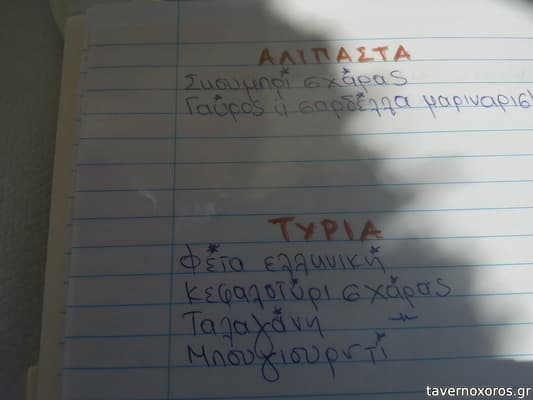 ΑΛΙΠΑΣΤΑ
Σκουμπρί σχάρας
Γαύρος ή σαρδέλλα
ΤΥΡΙΑ
Φέτα ελληνική
Κεφαλοτύρι σχάρας
Ταλαγάνη
Μπουγιουρντί
tavernoxoros.gr